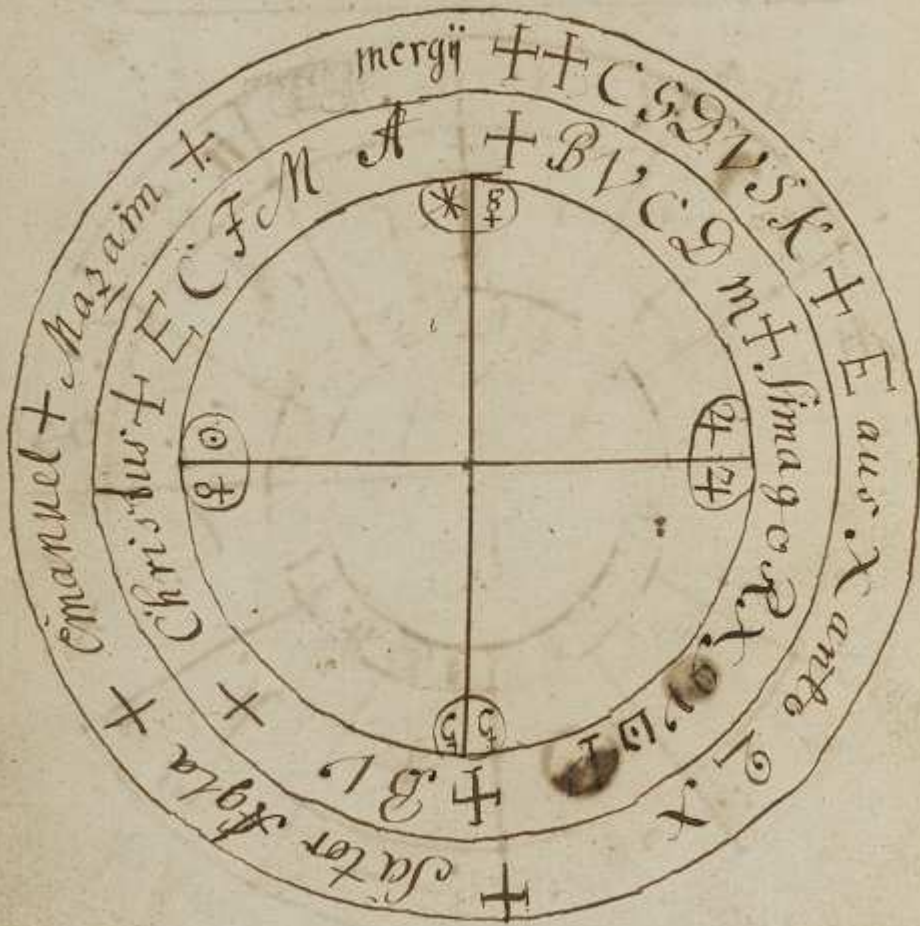 mergÿ ++ C G D V S K + E aus X anto Q X
+ Sator Agla + Emanuel + Mazaim +
+ B V C D m + Simago R X
+ B V + Christus + E C F M A
☉ ♀
♃ ♃